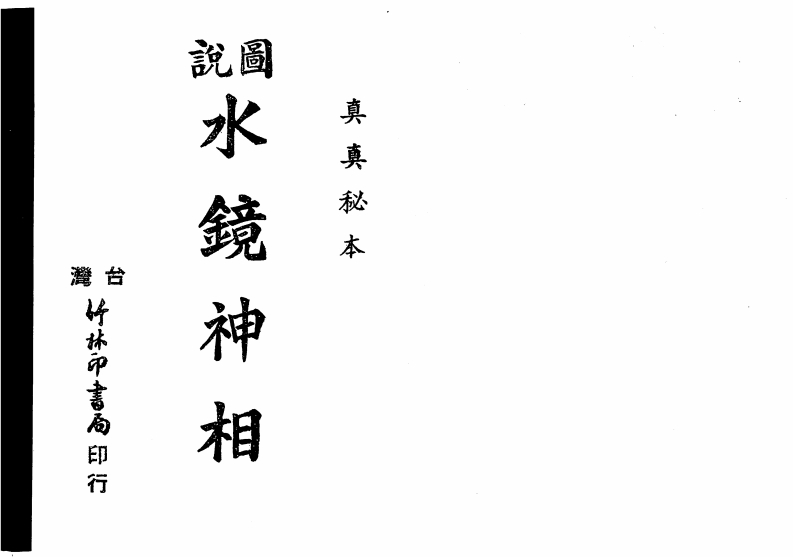 真真秘本
圖說
水鏡神相
台灣
竹林印書局印行